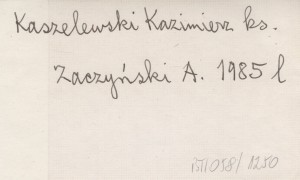 Kaszelewski Kazimierz ks.
Zaczyński A. 1985 l
058/1250